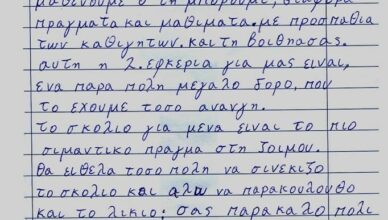 μαθενουμε ο τη μπορουμε, διαφορα
πραγματα και μαθηματα. με προσπαθια
των καθιγητων. και τη βοιθησας.
αυτη η 2. εφκερια για μας ειναι,
ενα παρα πολη μεγαλο δορο, που
το εχουμε τοσο αναγη.
το σκολιο για μενα ειναι το πιο
σιμαντικο πραγμα στη ζοιμου.
θα ειθελα τοσο πολη να συνεκιζο
το σκολιο και αλω να παρακουλουθο
και το λικιο; σας παρακαλο πολι